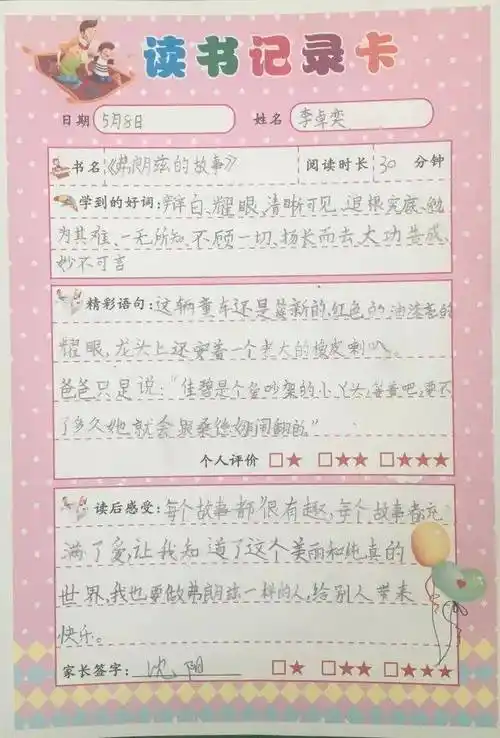 读书记录卡
日期 5月8日 姓名 李卓奕
书名 《弗朗兹的故事》 阅读时长 30 分钟
学到的好词: 辩白、耀眼、清晰可见、追根究底、勉
为其难、一无所知、不顾一切、扬长而去、大功告成、
妙不可言
精彩语句: 这辆童车还是崭新的,红色的油漆亮的
耀眼,龙头上还有一个老大的橡皮喇叭。
爸爸只是说:“佳碧是个爱吵架的小丫头,等着吧,要不
了多久她就会与桑德娜闹翻的。”
个人评价 □★ □★★ □★★★
读后感受: 每个故事都很有趣,每个故事都充
满了爱,让我知道了这个美丽和纯真的
世界,我也要做弗朗兹一样的人,给别人带来
快乐。
家长签字: 沈阳 □★ □★★ □★★★